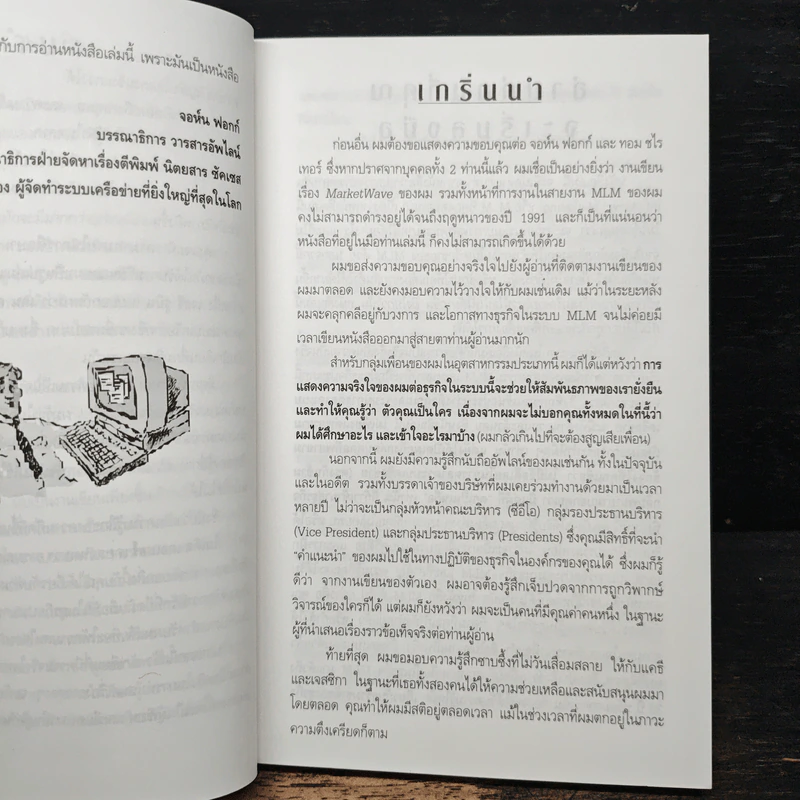 กับการอ่านหนังสือเล่มนี้ เพราะมันเป็นหนังสือ
จอห์น ฟอกก์
บรรณาธิการ วารสารอัพไลน์
าธิการฝ่ายจัดหาเรื่องตีพิมพ์ นิตยสาร ซัคเซส
อง ผู้จัดทำระบบเครือข่ายที่ยิ่งใหญ่ที่สุดในโลก
เกริ่นนำ
ก่อนอื่น ผมต้องขอแสดงความขอบคุณต่อ จอห์น ฟอกก์ และ ทอม ชไร
เทอร์ ซึ่งหากปราศจากบุคคลทั้ง 2 ท่านนี้แล้ว ผมเชื่อเป็นอย่างยิ่งว่า งานเขียน
เรื่อง MarketWave ของผม รวมทั้งหน้าที่การงานในสายงาน MLM ของผม
คงไม่สามารถดำรงอยู่ได้จนถึงฤดูหนาวของปี 1991 และก็เป็นที่แน่นอนว่า
หนังสือที่อยู่ในมือท่านเล่มนี้ ก็คงไม่สามารถเกิดขึ้นได้ด้วย
ผมขอส่งความขอบคุณอย่างจริงใจไปยังผู้อ่านที่ติดตามงานเขียนของ
ผมมาตลอด และยังคงมอบความไว้วางใจให้กับผมเช่นเดิม แม้ว่าในระยะหลัง
ผมจะคลุกคลีอยู่กับวงการ และโอกาสทางธุรกิจในระบบ MLM จนไม่ค่อยมี
เวลาเขียนหนังสือออกมาสู่สายตาท่านผู้อ่านมากนัก
สำหรับกลุ่มเพื่อนของผมในอุตสาหกรรมประเภทนี้ ผมก็ได้แต่หวังว่า การ
แสดงความจริงใจของผมต่อธุรกิจในระบบนี้จะช่วยให้สัมพันธภาพของเรายั่งยืน
และทำให้คุณรู้ว่า ตัวคุณเป็นใคร เนื่องจากผมจะไม่บอกคุณทั้งหมดในที่นี้ว่า
ผมได้ศึกษาอะไร และเข้าใจอะไรมาบ้าง (ผมกลัวเกินไปที่จะต้องสูญเสียเพื่อน)
นอกจากนี้ ผมยังมีความรู้สึกนับถืออัพไลน์ของผมเช่นกัน ทั้งในปัจจุบัน
และในอดีต รวมทั้งบรรดาเจ้าของบริษัทที่ผมเคยร่วมทำงานด้วยมาเป็นเวลา
หลายปี ไม่ว่าจะเป็นกลุ่มหัวหน้าคณะบริหาร (ซีอีโอ) กลุ่มรองประธานบริหาร
(Vice President) และกลุ่มประธานบริหาร (Presidents) ซึ่งคุณมีสิทธิ์ที่จะนำ
"คำแนะนำ" ของผมไปใช้ในทางปฏิบัติของธุรกิจในองค์กรของคุณได้ ซึ่งผมก็รู้
ดีว่า จากงานเขียนของตัวเอง ผมอาจต้องรู้สึกเจ็บปวดจากการถูกวิพากษ์
วิจารณ์ของใครก็ได้ แต่ผมก็ยังหวังว่า ผมจะเป็นคนที่มีคุณค่าคนหนึ่ง ในฐานะ
ผู้ที่นำเสนอเรื่องราวข้อเท็จจริงต่อท่านผู้อ่าน
ท้ายที่สุด ผมขอมอบความรู้สึกซาบซึ้งที่ไม่วันเสื่อมสลาย ให้กับแคธี
และเจสซิกา ในฐานะที่เธอทั้งสองคนได้ให้ความช่วยเหลือและสนับสนุนผมมา
โดยตลอด คุณทำให้ผมมีสติอยู่ตลอดเวลา แม้ในช่วงเวลาที่ผมตกอยู่ในภาวะ
ความตึงเครียดก็ตาม